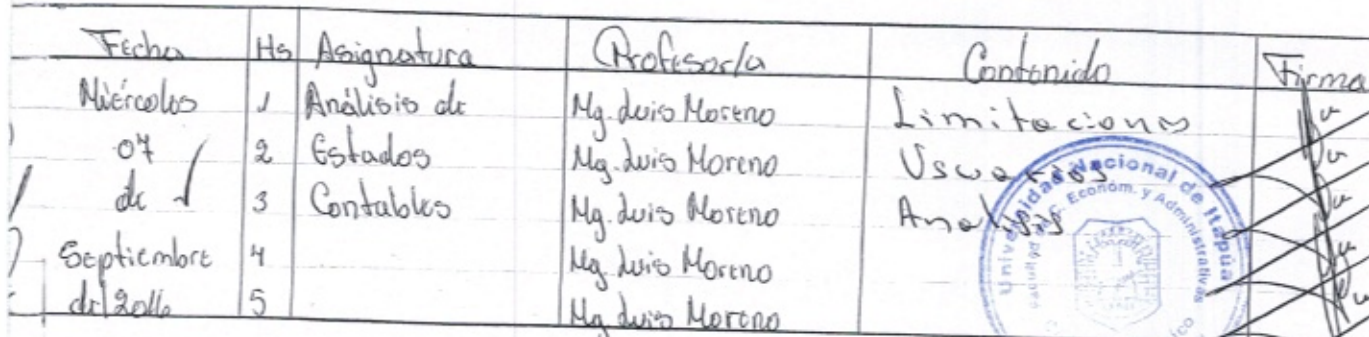 Fecha Hs Asignatura Profesor/a Contenido Firma
Miércoles 1 Análisis de Mg. Luis Moreno Limitaciones
07 2 Estados Mg. Luis Moreno Usuarios
de 3 Contables Mg. Luis Moreno Analisis
Septiembre 4 Mg. Luis Moreno
de 2016 5 Mg. Luis Moreno
Universidad Nacional de Itapúa
Facultad de C. Económ. y Administrativas